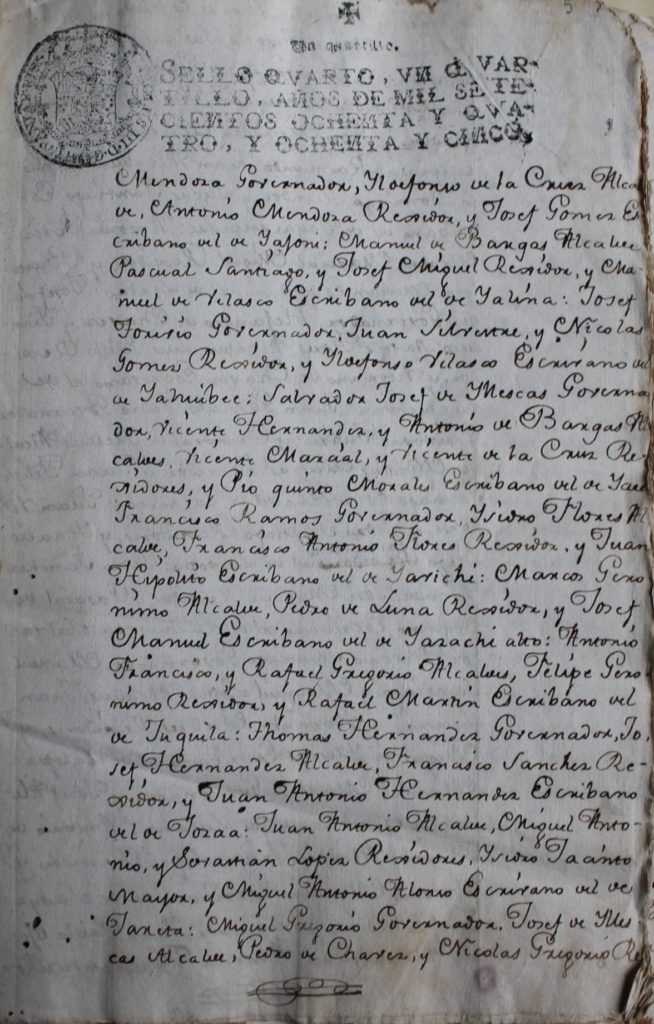 5
Un quartillo.
SELLO QVARTO, VN QVAR-
TILLO, AÑOS DE MIL SETE-
CIENTOS OCHENTA Y QVA-
TRO, Y OCHENTA Y CINCO.
Mendoza Governador, Yldefonso de la Cruz Alcal
de, Antonio Mendoza Rexidor, y Josef Gomez Es
cribano del de Yajoni: Manuel de Bargas Alcalde
Pascual Santiago, y Josef Miguel Rexidor, y Ma-
nuel de Velasco Escribano del de Yalina: Josef
Governador, Juan Silvestre, y Nicolas
Gomez Rexidor, y Yldefonso Velasco Escrivano del
de Salvador Josef de Yllescas Governa
dor, Vicente Hernandez, y Antonio de Bargas Al
caldes, Vicente Marcial, y Vicente de la Cruz Re-
xidores, y Pio quinto Morales Escribano del de Yaee
Francisco Ramos Governador, Ysidro Flores Al
calde, Francisco Antonio Flores Rexidor, y Juan
Hipolito Escribano del de Yavichi: Marcos Gero
nimo Alcalde, Pedro de Luna Rexidor, y Josef
Manuel Escribano del de Yazachi alto: Antonio
Francisco, y Rafael Gregorio Alcaldes, Felipe Gero
nimo Rexidor, y Rafael Martin Escribano del
de Juquila: Thomas Hernandez Governador, Jo
sef Hernandez Alcalde, Francisco Sanchez Re-
xidor, y Juan Antonio Hernandez Escribano
del de Yozaa: Juan Antonio Alcalde, Miguel Anto-
nio, y Sevastian Lopez Rexidores, Ysidro Jacinto
Mayor, y Miguel Antonio Alonso Escrivano del de
Miguel Gregorio Governador, Josef de Ylles
cas Alcalde, Pedro de Chavez, y Nicolas Gregorio Re